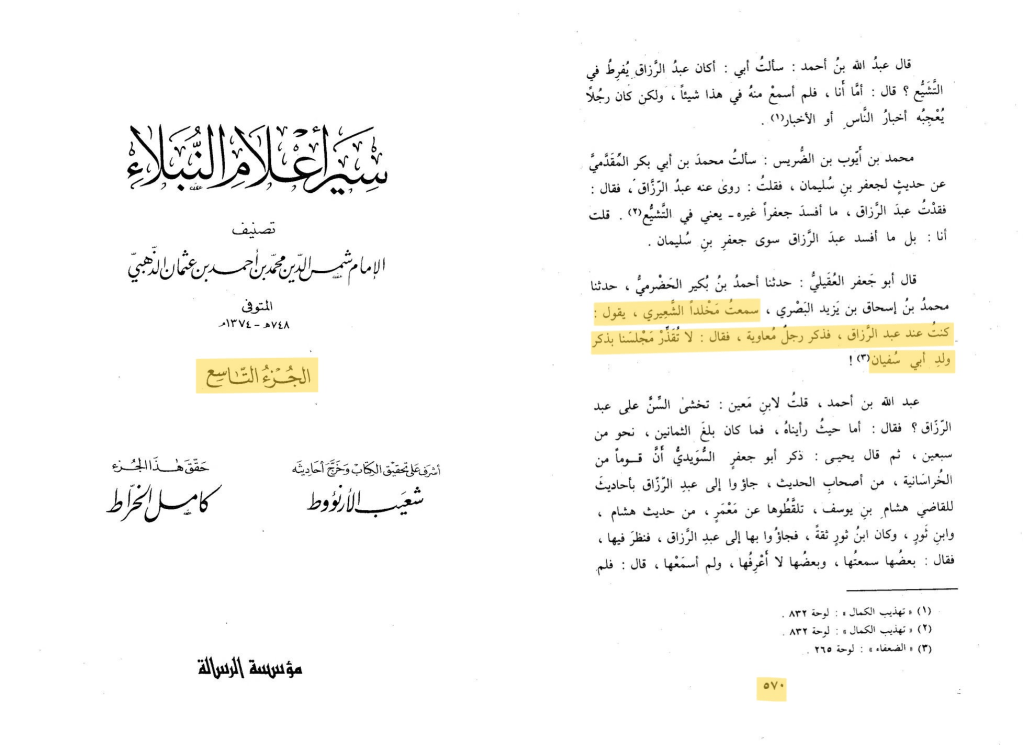 سير أعلام النبلاء
تصنيف
الإمام شمس الدين محمد بن أحمد بن عثمان الذهبي
المتوفى
٧٤٨هـ - ١٣٧٤م
الجزء التاسع
أشرف على تحقيق الكتاب وخرج أحاديثه
شعيب الأرنؤوط
حقق هذا الجزء
كامل الخراط
مؤسسة الرسالة
قال عبدُ الله بنُ أحمد : سألتُ أبي : أكان عبدُ الرَّزاق يُفرِطُ في
التَّشَيُّع ؟ قال : أمَّا أَنا ، فلم أسمعْ منهُ في هذا شيئاً ، ولكن كان رجُلًا
يُعْجِبُه أخبارُ النَّاس أو الأخبار(١) .
محمد بن أَيُّوب بن الضُّريس : سألتُ محمدَ بن أبي بكر المُقَدَّميَّ
عن حديثٍ لجعفر بنِ سُليمان ، فقلتُ : روىٰ عنه عبدُ الرَّزَّاق ، فقال :
فقدْتُ عبدَ الرَّزاق ، ما أفسدَ جعفراً غيره ـ يعني في التَّشيُّع(٢) . قلت
أنا : بل ما أفسد عبدَ الرَّزاق سوى جعفرِ بنِ سُليمان .
قال أبو جَعفر العُقَيليُّ : حدثنا أحمدُ بنُ بُكير الحَضْرميُّ ، حدثنا
محمدُ بنُ إسحاق بن يَزيد البَصْري ، سمعتُ مَخْلداً الشَّعِيري ، يقول :
كنتُ عند عبد الرَّزاق ، فذكر رجلٌ مُعاوية ، فقال : لا تُقَذِّرْ مَجْلسَنا بذكر
ولدِ أبي سُفيان(٣) !
عبد الله بن أحمد ، قلتُ لابنِ مَعين : تخشىٰ السِّنَّ على عبد
الرّزاق ؟ فقال : أما حيثُ رأيناهُ ، فما كان بلغَ الثمانين ، نحو من
سبعين ، ثم قال يحيى : ذكر أبو جعفرٍ السُّوَيديُّ أَنَّ قـومـاً من
الخُراسانية ، من أصحابِ الحديث ، جاؤوا إلى عبدِ الرّزاق بأحاديثَ
للقاضي هشام بنِ يوسف ، تلقَّطُوها عن مَعْمَرٍ ، من حديث هشام ،
وابنِ ثَورٍ ، وكان ابنُ ثورٍ ثقةً ، فجاؤوا بها إلى عبد الرَّزاق ، فنظرَ فيها ،
فقال : بعضُها سمعتُها ، وبعضُها لا أَعْرِفُها ، ولم أسمَعْها ، قال : فلم
(١) « تهذيب الكمال » : لوحة ٨٣٢ .
(٢) « تهذيب الكمال » : لوحة ٨٣٢ .
(٣) « الضعفاء » : لوحة ٢٦٥ .
٥٧٠